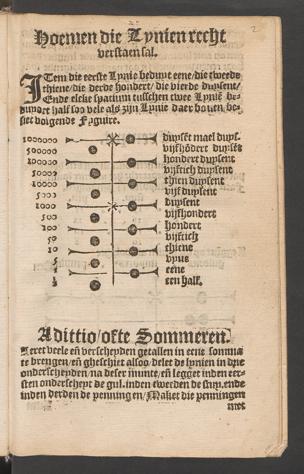 2
Hoemen die Lynien recht
verstaen sal.
Item die eerste Lynie beduyt eene/die tweede
thiene/die derde hondert/die vierde duysent/
Ende elcke spatium tusschen twee Lyniē be-
half soo vele als zijn Lynie daer boven, be-
siet volgende Fygure.
1000000 duysēt mael duys.
500000 vijfhōdert duysēt
100000 hondert duysent
50000 vijftich duysent
10000 thien duysent
5000 vijf duysent
1000 duysent
500 vijfhondert
100 hondert
50 vijftich
10 thiene
5 vyve
1 eene
½ een half.
Additio/ofte Sommeren.
Leret veele eñ verscheyden getallen in eene somma
te brengen/eñ gheschiet alsoo/ delet de lynien in drie
onderscheyden/na deser munte/eñ legget inden eer-
sten onderscheyt de gul. inden tweerden de stuy. ende
inden derden de penningen/Maket die penningen
met